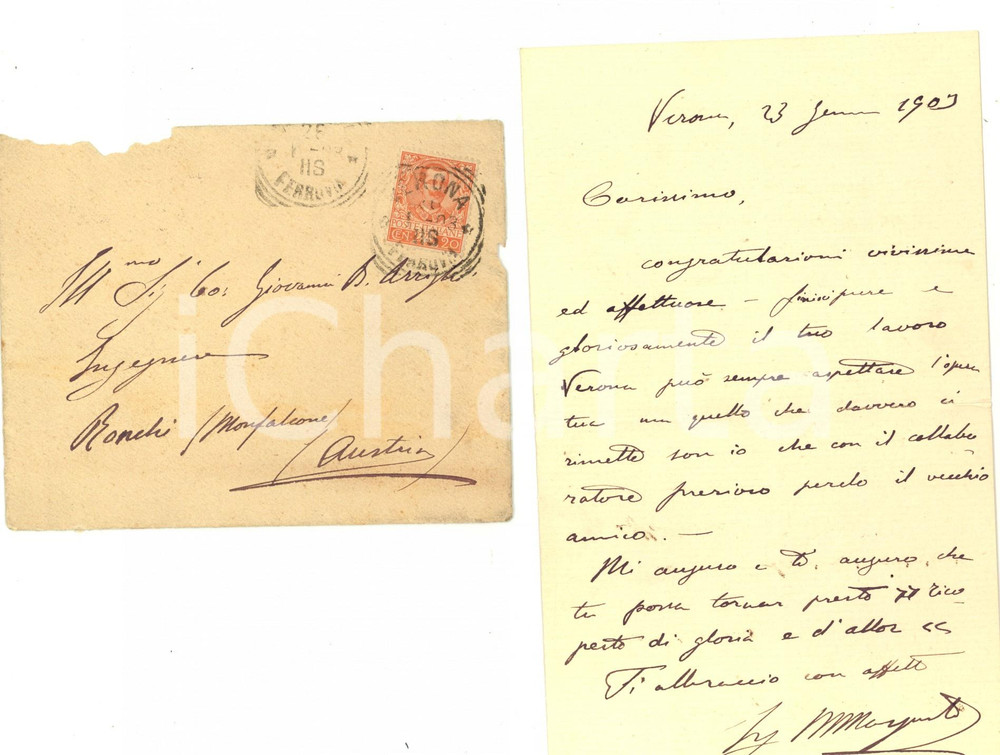 26
11S
FERROVIA
VERONA
11S
FERROVIA
POSTE ITALIANE
CENT. 20
Ill.mo Sig. Co: Giovanni B. Arrighi
Ingegnere
Ronchi (Monfalcone)
(Austria)
iCharta
Verona, 23 Genn 1903
Carissimo,
congratulazioni vivissime
ed affettuose – finisci pure e
gloriosamente il tuo lavoro
Verona può sempre aspettare l'opera
tua ma quello che davvero ci
rimette son io che con il collabo
ratore prezioso perdo il vecchio
amico. –
Mi auguro e ti auguro che
tu possa tornar presto rico
perto di gloria e d'allor
Ti abbraccio con affetto